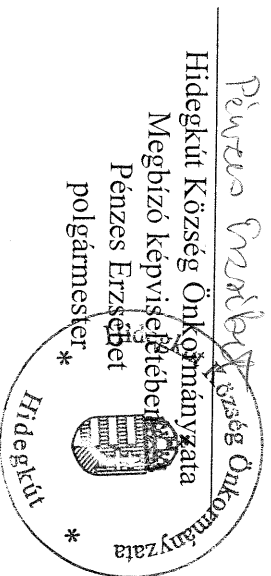 Pénzes Erzsébet
Hidegkút Község Önkormányzata
Megbízó képviseletében
Pénzes Erzsébet
polgármester
Hidegkút Község Önkormányzata
* Hidegkút *